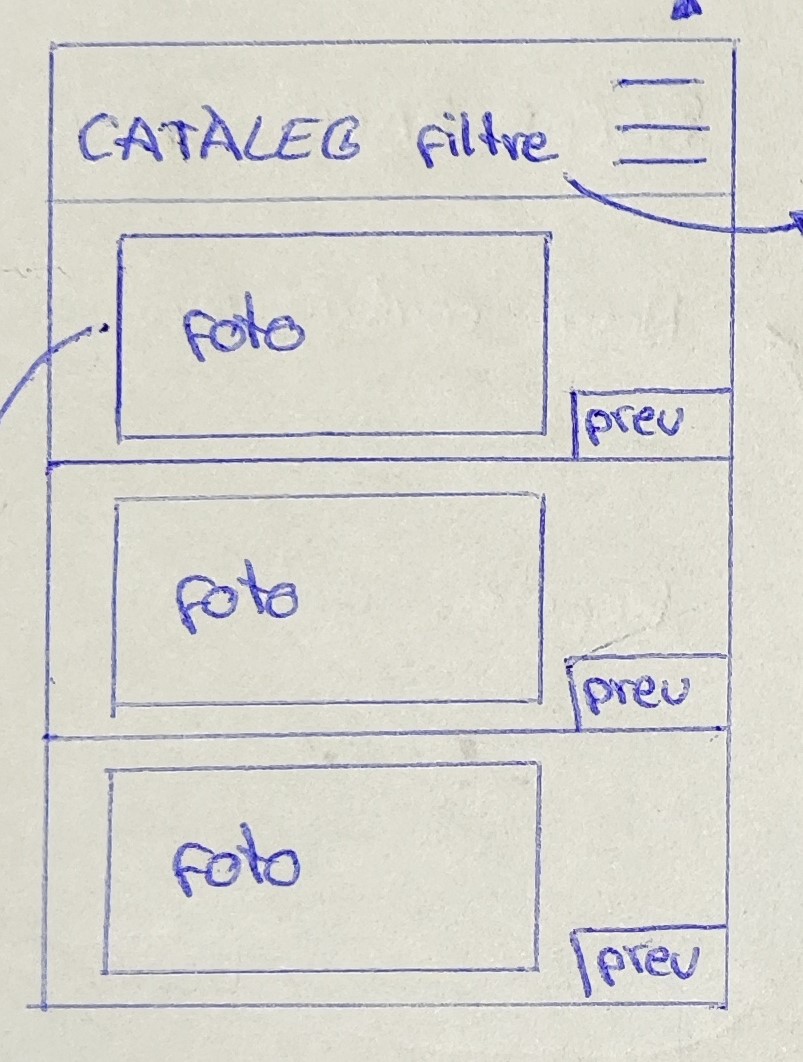 CATÀLEG filtre
foto
preu
foto
preu
foto
preu